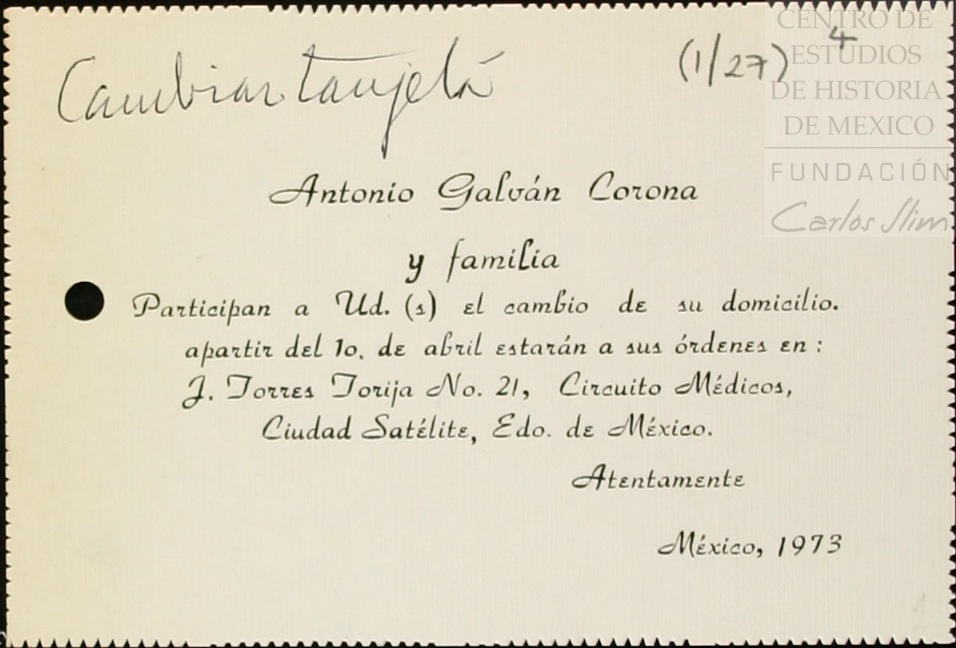 Cambiar tarjeta
(1/27) 4
CENTRO DE
ESTUDIOS
DE HISTORIA
DE MEXICO
FUNDACIÓN
Carlos Slim
Antonio Galván Corona
y familia
Participan a Ud. (s) el cambio de su domicilio.
apartir del 1o. de abril estarán a sus órdenes en :
J. Torres Torija No. 21, Circuito Médicos,
Ciudad Satélite, Edo. de México.
Atentamente
México, 1973